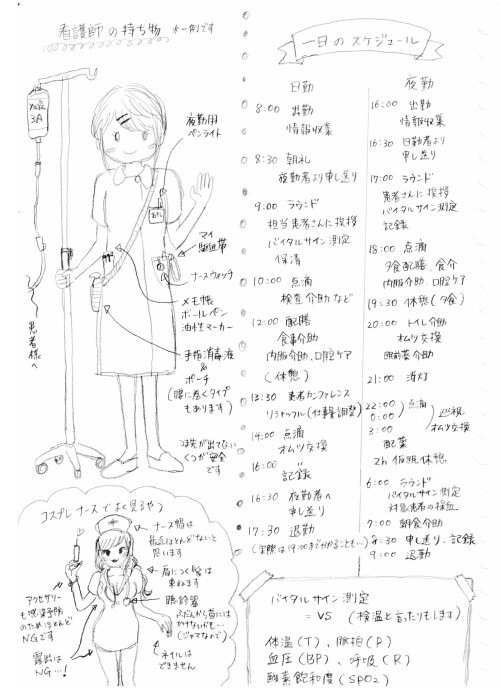 看護師の持ち物 ※一例です
ソルデム
3A
患者様へ
夜勤用
ペンライト
マイ
駆血帯
ナースウォッチ
メモ帳
ボールペン
油性マーカー
手指消毒液
&
ポーチ
(腰に巻くタイプ
もあります)
つま先が出てない
くつが安全
です
コスプレナースでよく見るやつ
ナース帽は
最近ほとんどないと
思います
肩につく髪は
束ねます
聴診器
ふだんから首には
かけないかも…
(ジャマなので)
ネイルは
できません
アクセサリー
も感染予防
のためほとんど
NGです
露出は
NG…!
一日のスケジュール
日勤
8:00 出勤
情報収集
8:30 朝礼
夜勤者より申し送り
9:00 ラウンド
担当患者さんに挨拶
バイタルサイン測定
保清
10:00 点滴
検査介助など
12:00 配膳
食事介助
内服介助、口腔ケア
(休憩)
13:30 患者カンファレンス
リシャッフル(仕事量調整)
14:00 点滴
オムツ交換
16:00 〃
記録
16:30 夜勤者へ
申し送り
17:30 退勤
(実際は19:00まで分かることも…)
夜勤
16:00 出勤
情報収集
16:30 日勤者より
申し送り
17:00 ラウンド
患者さんに挨拶
バイタルサイン測定
記録
18:00 点滴
夕食配膳、食介
内服介助、口腔ケア
19:30 休憩(夕食)
20:00 トイレ介助
オムツ交換
眠前薬介助
21:00 消灯
22:00 点滴
0:00
3:00
巡視
オムツ交換
配薬
2h 仮眠休憩
6:00 ラウンド
バイタルサイン測定
対象患者の採血
7:00 朝食介助
8:30 申し送り、記録
9:00 退勤
バイタルサイン測定
=VS (検温と言ったりもします)
体温(T)、脈拍(P)
血圧(BP)、呼吸(R)
酸素飽和度(SPO2)